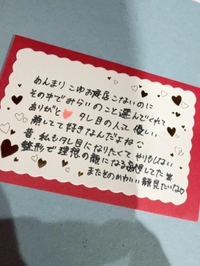 めんまり こゆお商店こないのに
その中でみらいのこと選んでくれて
ありがと タレ目の人って優しい
顔してて好きなんだよね
昔、私もタレ目になりたくて やりもしない
整形で理想の顔になる妄想してた
またそのかわいい顔見たいな